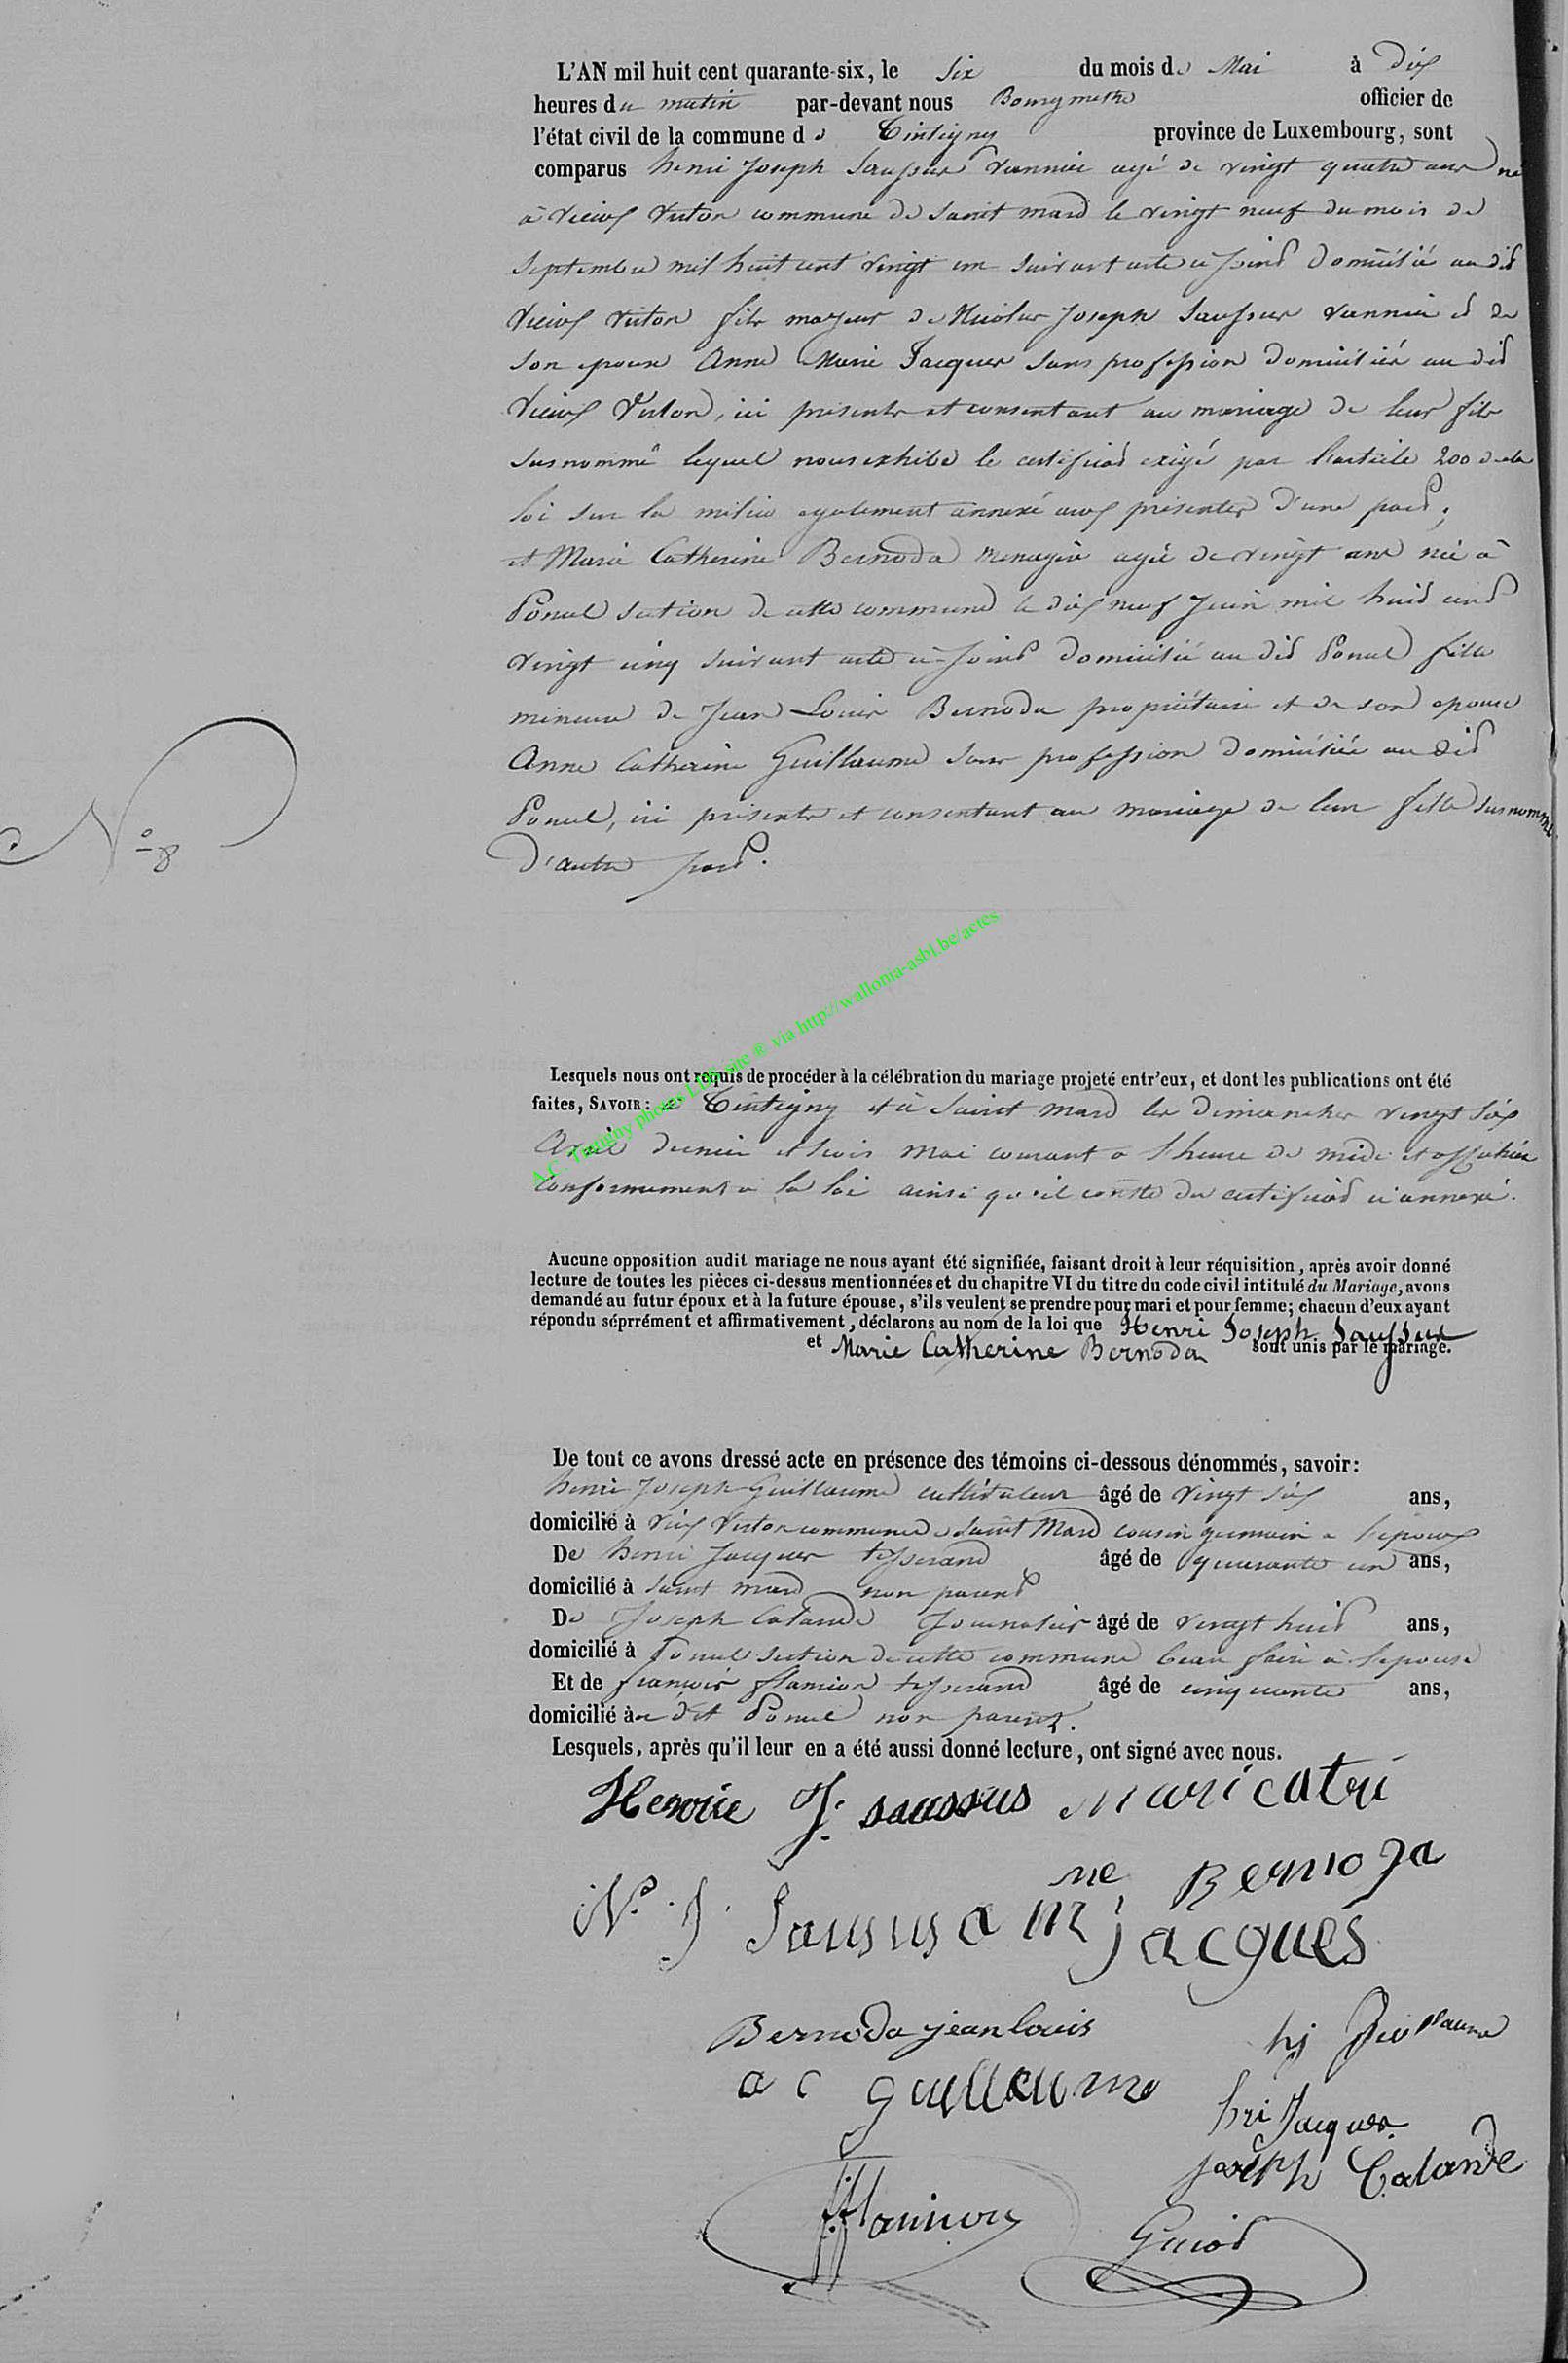 L'AN mil huit cent quarante-six, le six du mois de Mai à dix
heures du matin par-devant nous Bourgmestre officier de
l'état civil de la commune de Tintigny province de Luxembourg, sont
comparus henri Joseph Saussus vannier agé de vingt quatre ans né
à vieux virton commune de saint mard le vingt neuf du mois de
septembre mil huit cent vingt un suivant acte ci joint domicilié au dit
vieux virton fils majeur de Nicolas Joseph Saussus vannier et de
son epouse Anne Marie Jacques sans profession domiciliés au dit
vieux virton, ici présents et consentant au mariage de leur fils
susnommé lequel nous exhibe le certificat exigé par l'article 200 de la
loi sur la milice egalement annexé aux présentes d'une part;
et Marie Catherine Bernoda menagère agée de vingt ans née à
Poncel section de cette commune le dix neuf Juin mil huit cent
vingt cinq suivant acte ci-joint domiciliée au dit Poncel fille
mineure de Jean Louis Bernoda propriétaire et de son epouse
Anne Catherine Guillaume sans profession domiciliés au dit
Poncel, ici présents et consentant au mariage de leur fille susnommée
d'autre part.
N° 8
A.C. Tintigny photos LDS site ® via http://wallonia-asbl.be/actes
Lesquels nous ont requis de procéder à la célébration du mariage projeté entr'eux, et dont les publications ont été
faites, SAVOIR: à Tintigny et à Saint mard les dimanches vingt six
Avril dernier et trois mai courant a l'heure de midi et affichées
conformement a la loi ainsi qu'il conste du certificat ci annexé.
Aucune opposition audit mariage ne nous ayant été signifiée, faisant droit à leur réquisition, après avoir donné
lecture de toutes les pièces ci-dessus mentionnées et du chapitre VI du titre du code civil intitulé du Mariage, avons
demandé au futur époux et à la future épouse, s'ils veulent se prendre pour mari et pour femme; chacun d'eux ayant
répondu séprrément et affirmativement, déclarons au nom de la loi que Henri Joseph Saussus
et Marie Catherine Bernoda sont unis par le mariage.
De tout ce avons dressé acte en présence des témoins ci-dessous dénommés, savoir:
henri Joseph Guillaume cultivateur âgé de vingt six ans,
domicilié à vieux virton commune de saint Mard cousin germain a l'epoux
De henri Jacques tisserand âgé de quarante un ans,
domicilié à saint mard non parent
De Joseph Calande Journalier âgé de vingt huit ans,
domicilié à Poncel section de cette commune beau frère à l'epouse
Et de françois flamion tisserand âgé de cinquante ans,
domicilié à dit Poncel non parent.
Lesquels, après qu'il leur en a été aussi donné lecture, ont signé avec nous.
Henrie J. saussus Maricatri
ne Bernoda
N. J Sausus a m jacques
Bernoda jean louis hj Guillaume
a c guillaume
hri Jacques
joseph Calande
ff flamion Guiot